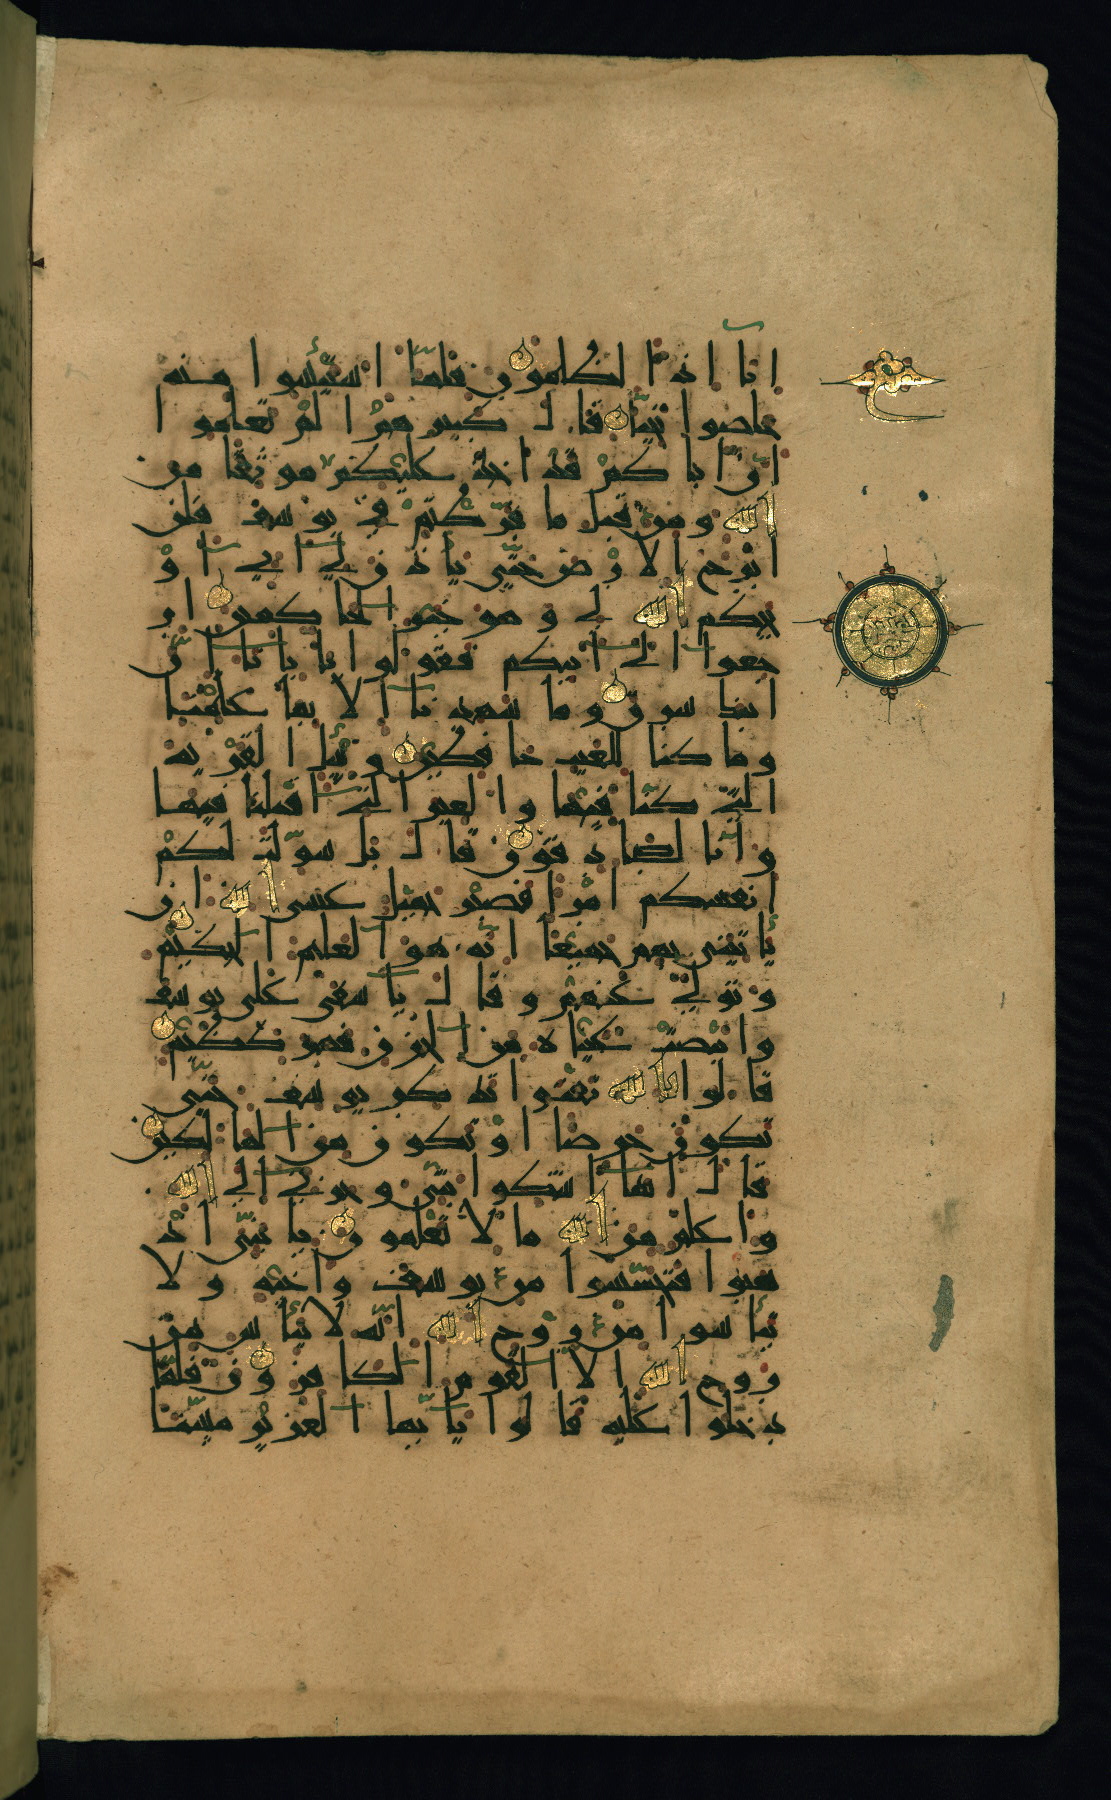 انا اذا لظلمون فلما استيئسوا منه
خلصوا نجيا قال كبيرهم الم تعلموا
ان اباكم قد اخذ عليكم موثقا من
الله ومن قبل ما فرطتم في يوسف فلن
ابرح الارض حتى ياذن لي ابي او
يحكم الله لي وهو خير الحاكمين ار
جعوا الى ابيكم فقولوا يا بانا ان
ابنك سرق وما شهدنا الا بما علمنا
وما كنا للغيب حافظين وسئل القرية
التي كنا فيها والعير التي اقبلنا فيها
وانا لصادقون قال بل سولت لكم
انفسكم امرا فصبر جميل عسى الله ان
ياتيني بهم جميعا انه هو العليم الحكيم
وتولى عنهم وقال ياسفى على يوسف
وابيضت عيناه من الحزن فهو كظيم
قالوا تالله تفتوا تذكر يوسف حتى
تكون حرضا او تكون من الهالكين
قال انما اشكوا بثي وحزني الى الله
واعلم من الله ما لا تعلمون يا بني اذ
هبوا فتحسسوا من يوسف واخيه ولا
تيأسوا من روح الله انه لا ييأس من
روح الله الا القوم الكافرون فلما
دخلوا عليه قالوا يا يها العزيز مسنا